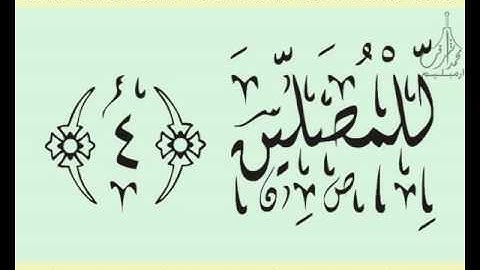 لِّلْمُصَلِّينَ ٤